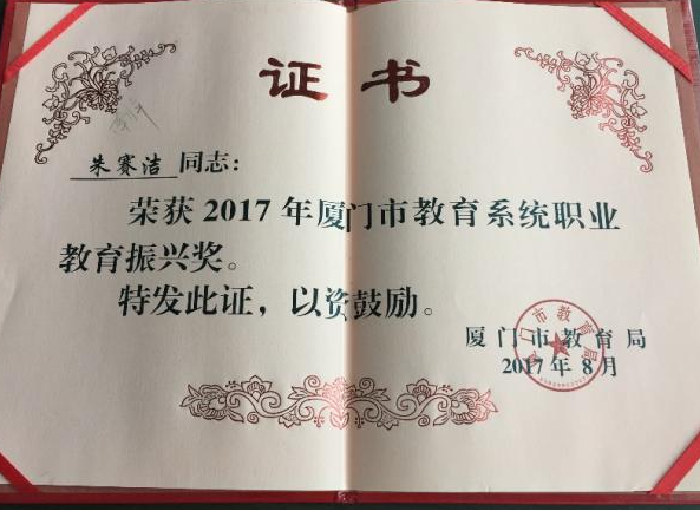 证书
朱赛洁 同志：
荣获2017年厦门市教育系统职业
教育振兴奖。
特发此证，以资鼓励。
厦门市教育局
2017年8月
厦门市教育局